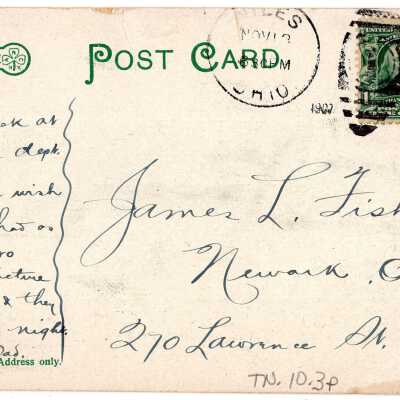 POST CARD
NILES
NOV 12
630 PM
OHIO
1907
ok at
dept.
wish
had as
ro
icture
& they
night.
Dad.
Address only.
James L. Fish
Newark, O
270 Lawrence St.
TN. 10.3p